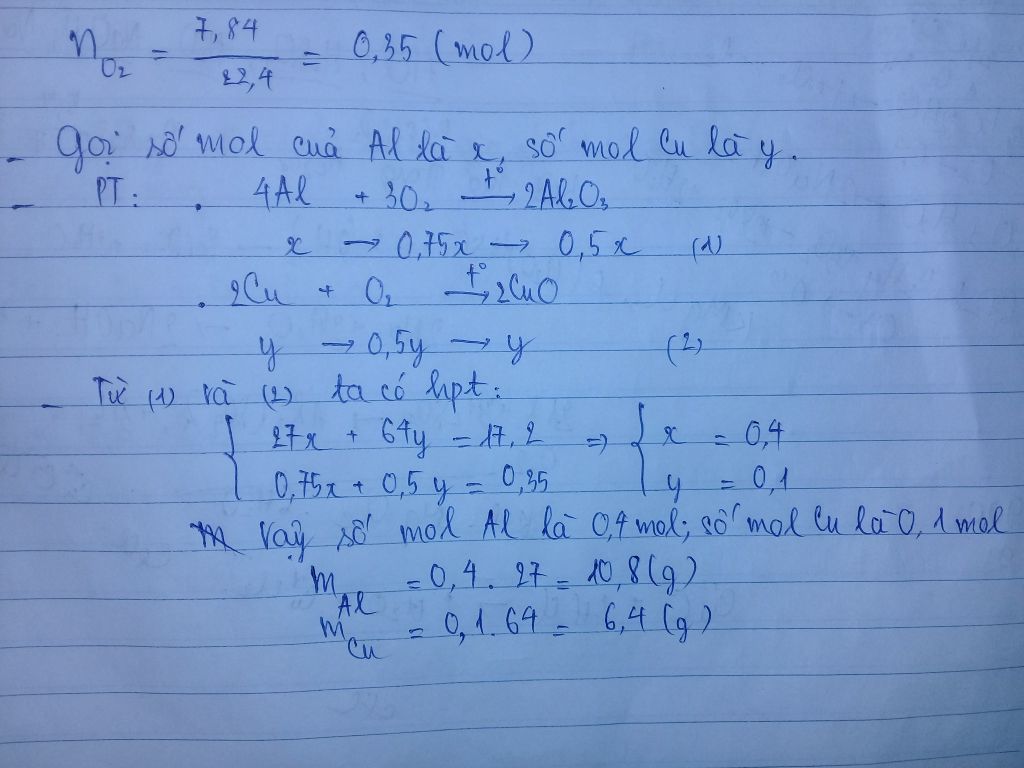 n_O₂ = 7,84 / 22,4 = 0,35 (mol)
- Gọi số mol của Al là x, số mol Cu là y.
- PT: . 4Al + 3O₂ –t°→ 2Al₂O₃
x → 0,75x → 0,5x (1)
. 2Cu + O₂ –t°→ 2CuO
y → 0,5y → y (2)
- Từ (1) và (2) ta có hpt:
{ 27x + 64y = 17,2 ⇒ { x = 0,4
0,75x + 0,5y = 0,35 y = 0,1
Vậy số mol Al là 0,4 mol; số mol Cu là 0,1 mol
m_Al = 0,4 . 27 = 10,8 (g)
m_Cu = 0,1 . 64 = 6,4 (g)